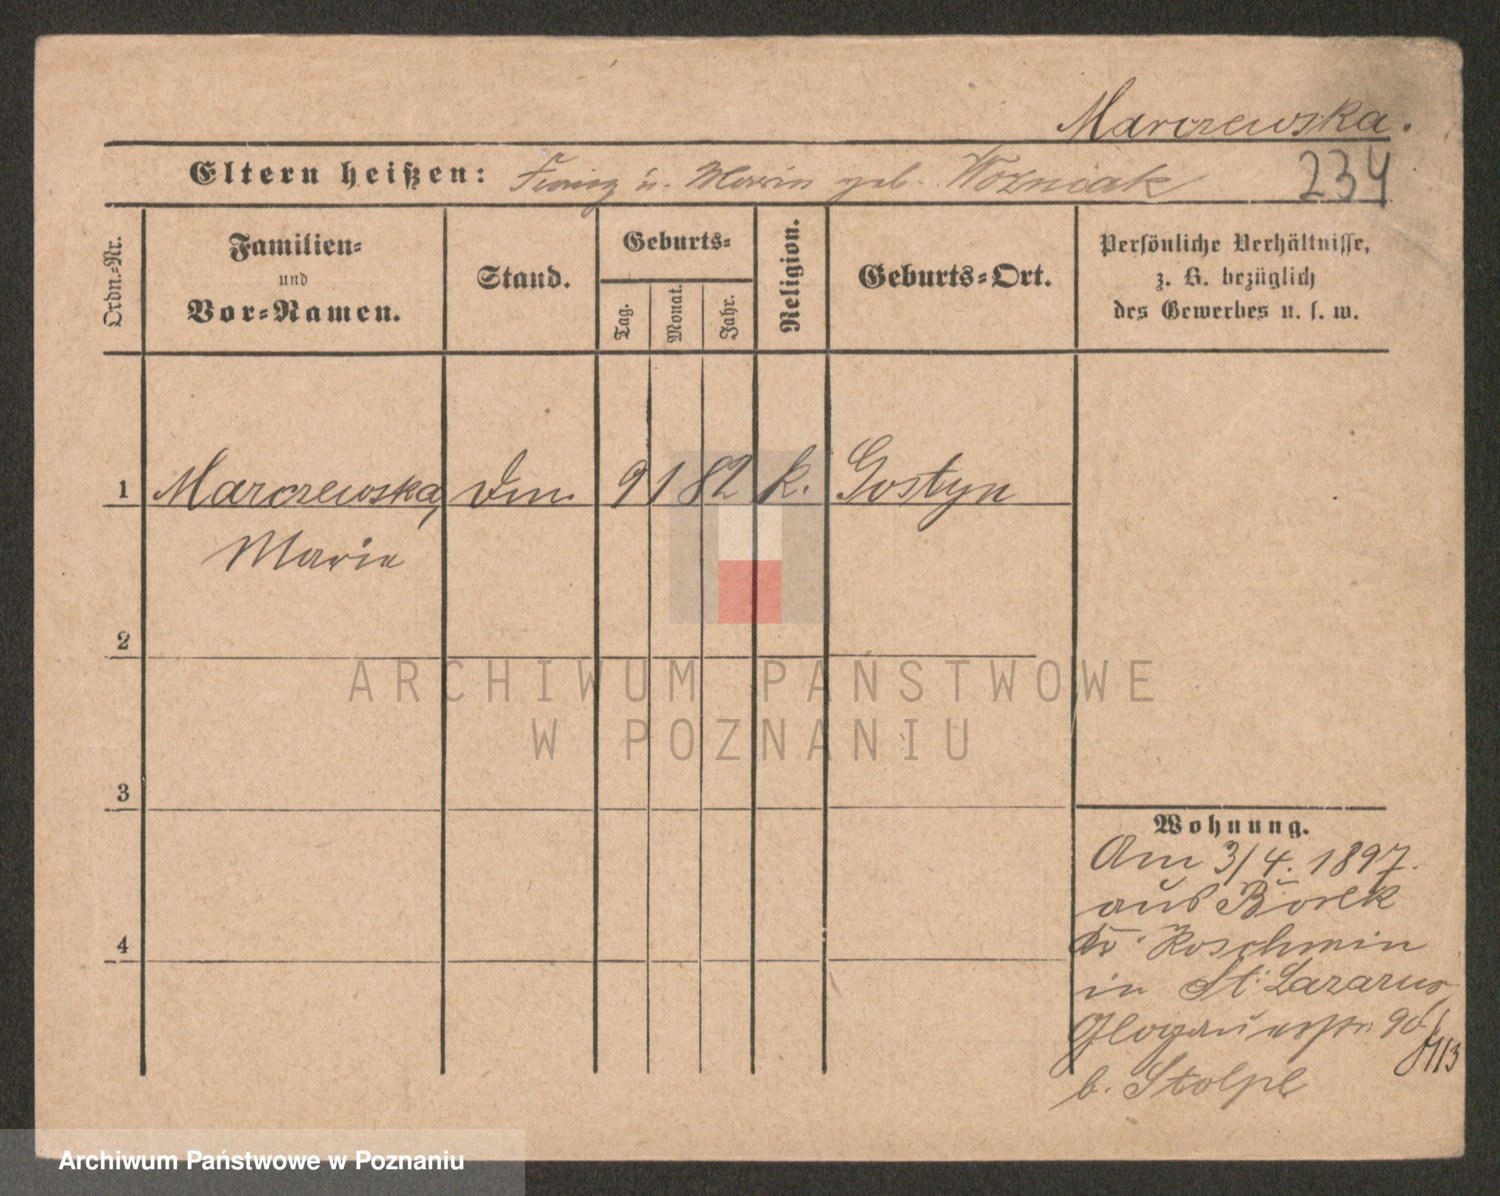 Marczewska.
Eltern heißen: Franz u. Marie geb. Wozniak 234
Ordn.-Nr.
Familien-
und
Vor-Namen.
Stand.
Geburts-
Tag.
Monat.
Jahr.
Religion.
Geburts-Ort.
Persönliche Verhältnisse,
z. B. bezüglich
des Gewerbes u. s. w.
1 Marczewska, 9 1 82 k. Gostyn
Marie
2
3
4
Wohnung.
Am 3/4. 1897.
aus Borek
Kr. Koschmin
in St. Lazarus
Glogauerstr. 90
b. Stolpe
ARCHIWUM PAŃSTWOWE
W POZNANIU
Archiwum Państwowe w Poznaniu